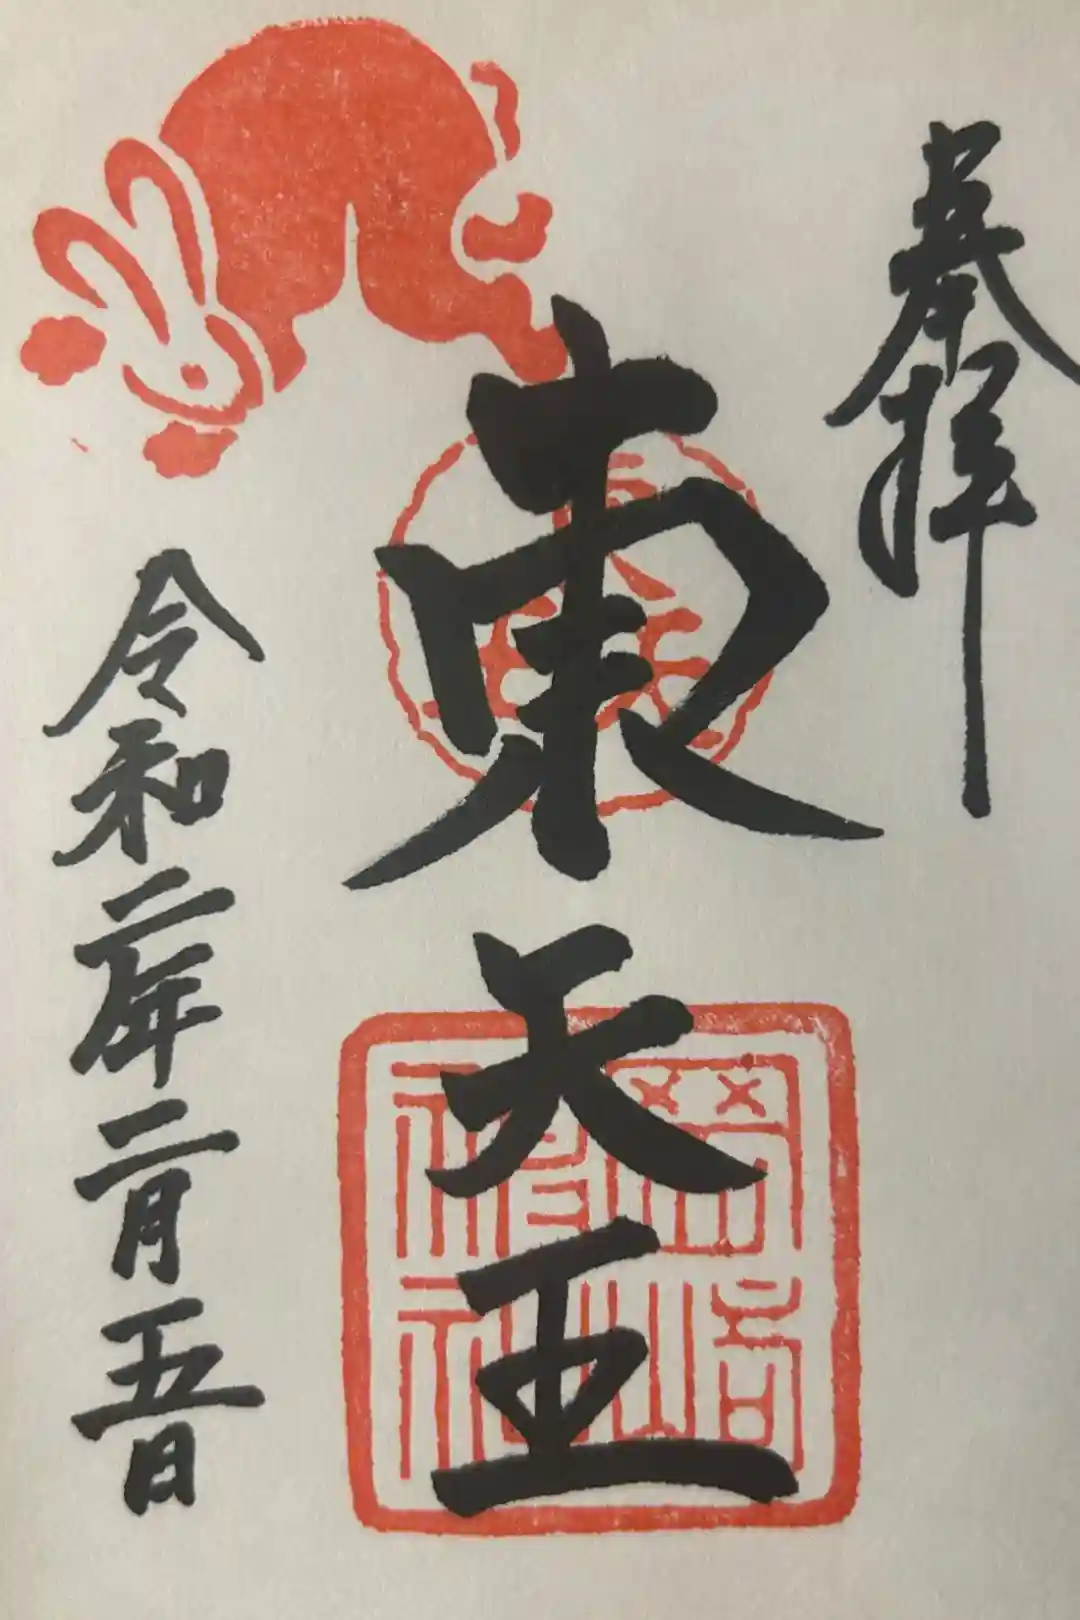 奉拝
東天王
令和二年二月五日